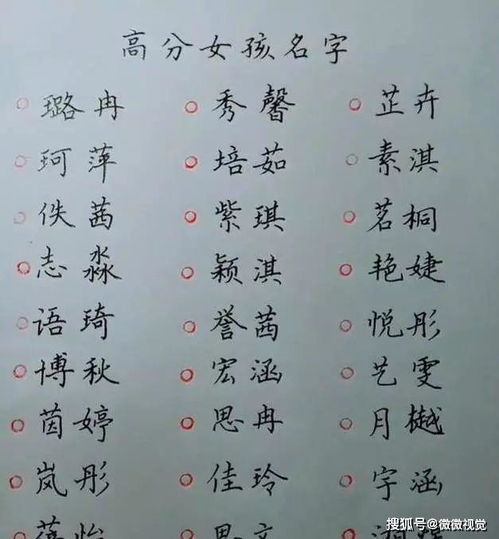 高分女孩名字
璐冉 秀馨 芷卉
珂萍 培茹 素淇
佚茜 紫琪 茗桐
志淼 颖淇 艳婕
语琦 誉茜 悦彤
博秋 宏涵 艺雯
茵婷 思冉 月樾
岚彤 佳玲 宇涵
搜狐号@微微视觉